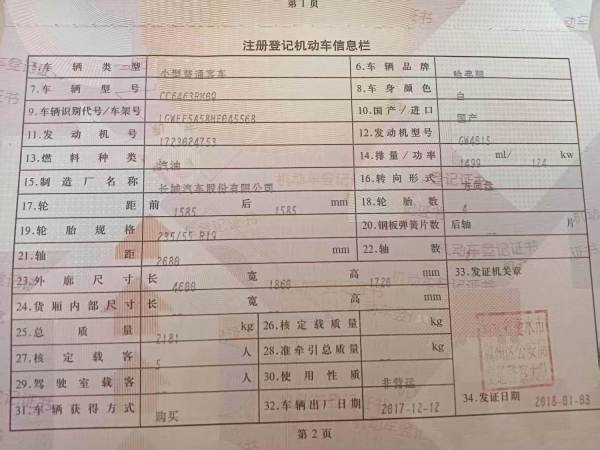 第1页
注册登记机动车信息栏
5.车辆类型 小型普通客车 6.车辆品牌 哈弗牌
7.车辆型号 8.车身颜色 白
9.车辆识别代号/车架号 10.国产/进口 国产
11.发动机号 1723024753 12.发动机型号 GW4B15
13.燃料种类 汽油 14.排量/功率 1499 ml/ 124 kw
15.制造厂名称 长城汽车股份有限公司 16.转向形式 方向盘
17.轮距 前 1585 后 1585 mm 18.轮胎数 4
19.轮胎规格 225/55 R19 20.钢板弹簧片数 后轴 片
21.轴距 2680 mm 22.轴数
23.外廓尺寸 长 4600 宽 1860 高 1720 mm 33.发证机关章
24.货厢内部尺寸 长 宽 高 mm
25.总质量 2181 kg 26.核定载质量 kg
27.核定载客 5 人 28.准牵引总质量 kg
29.驾驶室载客 人 30.使用性质 非营运
31.车辆获得方式 购买 32.车辆出厂日期 2017-12-12 34.发证日期 2018-01-03
第2页